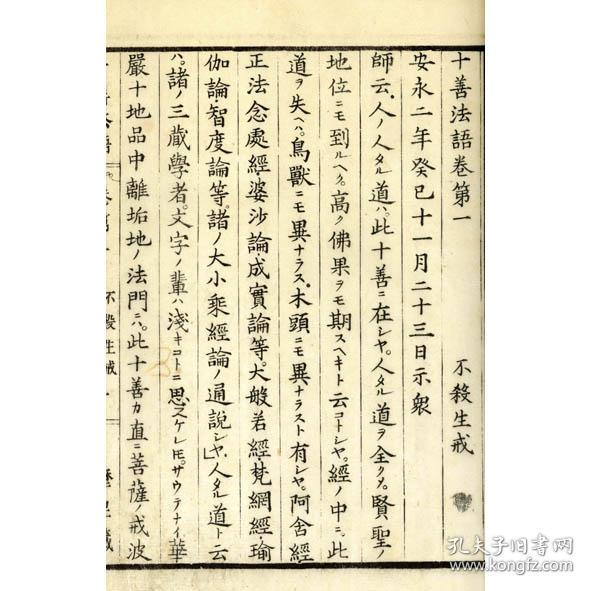 十善法語卷第一　不殺生戒
安永二年癸巳十一月二十三日示衆
師云。人ノ人タル道ハ。此十善ニ在シヤ。人タル道ヲ全クメ。賢聖ノ
地位ニモ到ルヘク。高ク佛果ヲモ期スヘキト云コトシヤ。經ノ中ニ。此
道ヲ失ヘハ。鳥獸ニモ異ナラス。木頭ニモ異ナラスト有シヤ。阿含經
正法念處經。婆沙論。成實論等。大般若經。梵網經。瑜
伽論。智度論等。諸ノ大小乘經論ノ通說シヤ。人タル道ト云
ハ。諸ノ三藏學者。文字ノ輩ハ淺キコトニ思フケレ𪜈。サウテナイ。華
嚴十地品中離垢地ノ法門ニハ。此十善カ直ニ菩薩ノ戒波
不殺生戒
孔夫子旧书网
www.kongfz.com